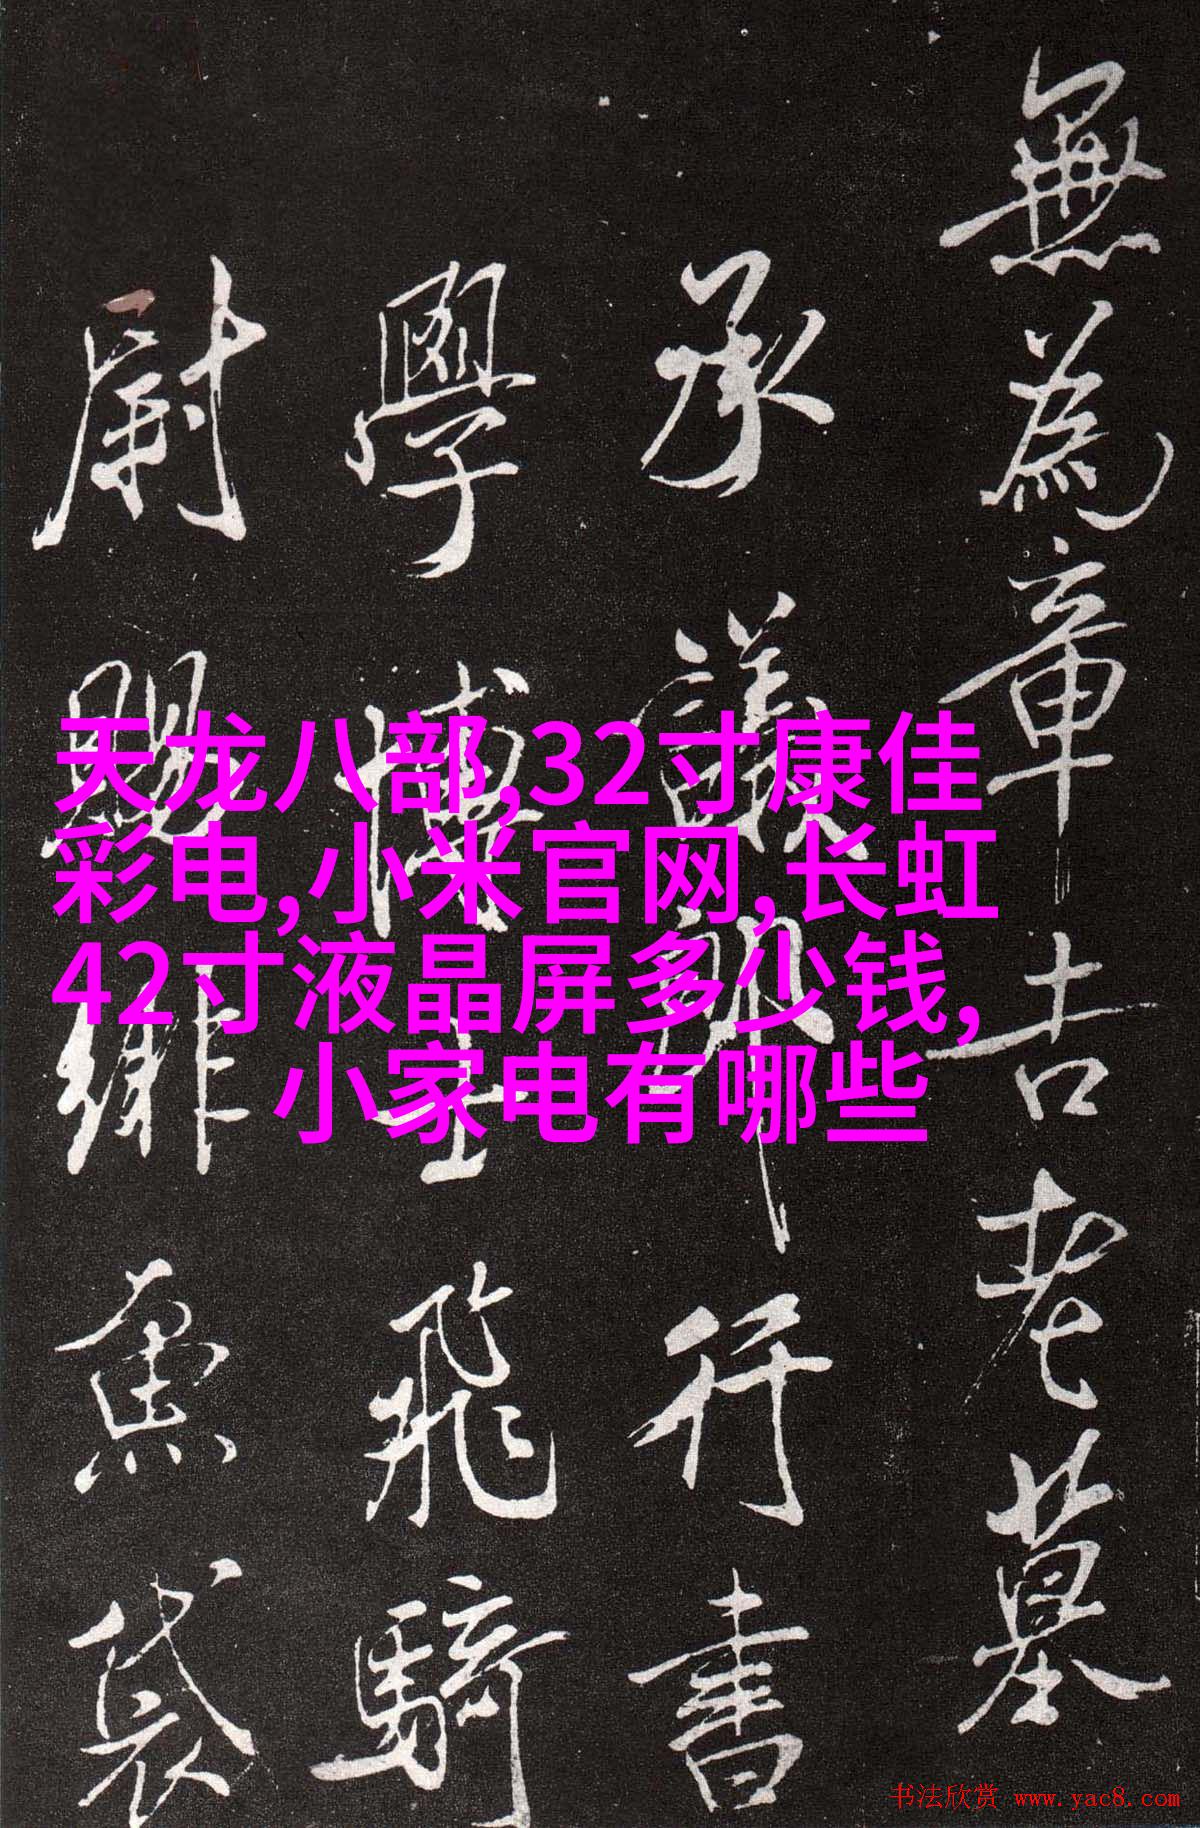 無為章吉老墓
承議郎行書
學博士飛騎
尉賜緋魚袋
天龙八部,32寸康佳
彩电,小米官网,长虹
42寸液晶屏多少钱,
小家电有哪些
书法欣赏 www.yac8.com